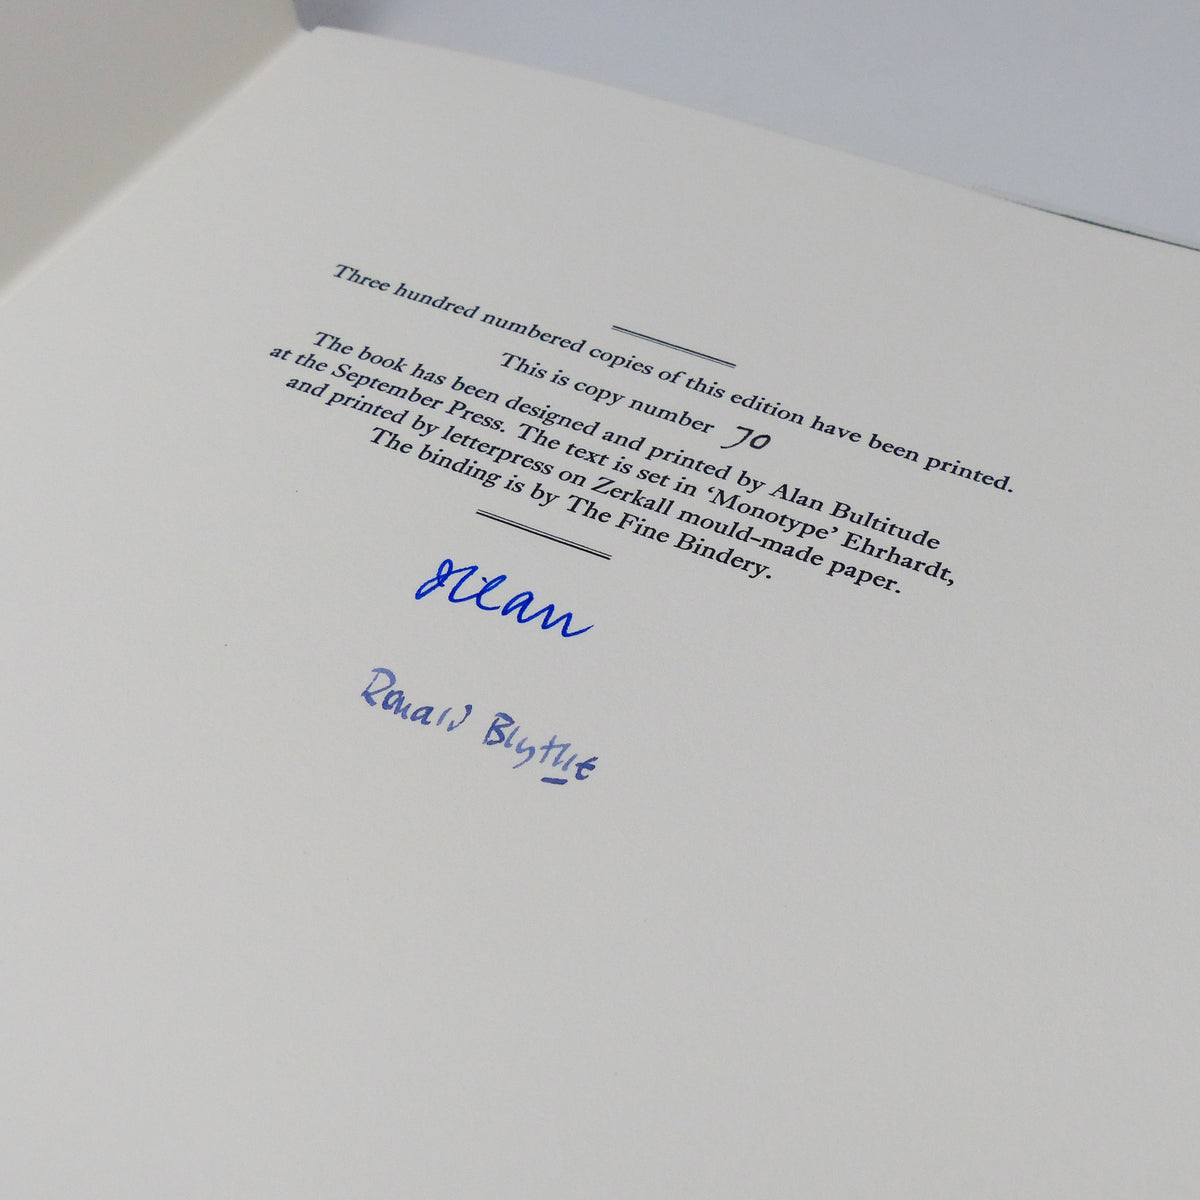 Three hundred numbered copies of this edition have been printed.
This is copy number 70
The book has been designed and printed by Alan Bultitude
at the September Press. The text is set in ‘Monotype’ Ehrhardt,
and printed by letterpress on Zerkall mould-made paper.
The binding is by The Fine Bindery.
Ronald Blythe